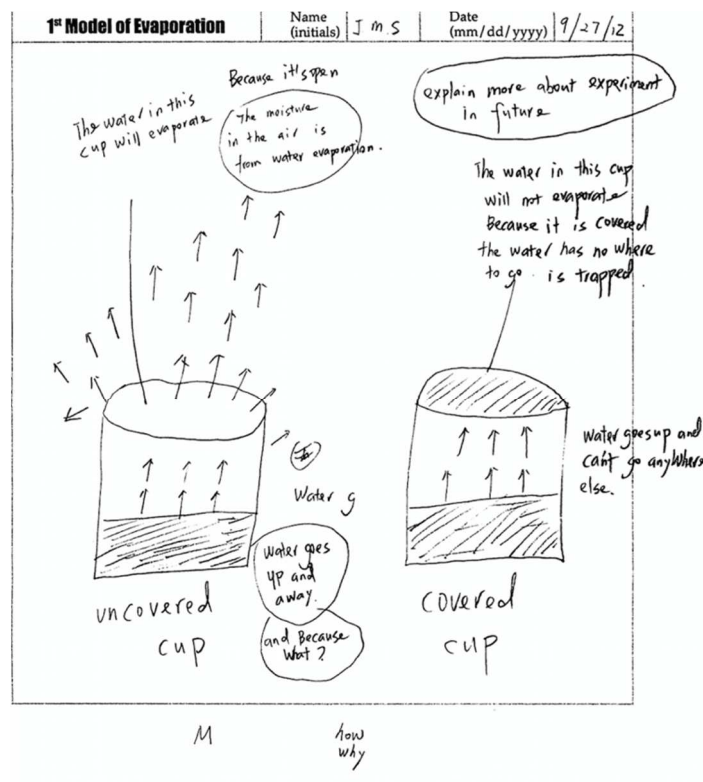 1st Model of Evaporation
Name
(initials)
J m.S
Date
(mm/dd/yyyy)
9/27/12
The water in this
cup will evaporate
Because it's open
The moisture
in the air is
from water evaporation.
explain more about experiment
in future
The water in this cup
will not evaporate
Because it is covered
the water has no where
to go. is trapped.
Water g
water goes
up and
away.
and Because
what?
water goes up and
can't go anywhere
else.
uncovered
cup
covered
cup
M
how
why